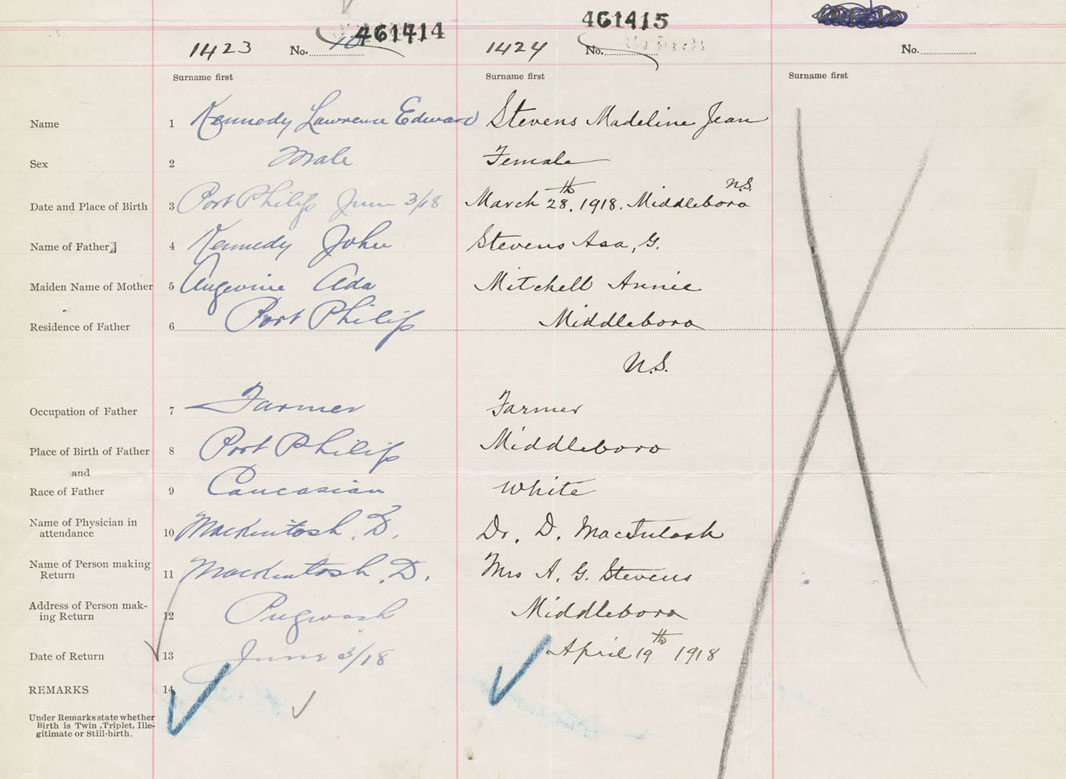 461414 461415
1423 No. 1424 No. No.
Surname first Surname first Surname first
Name 1 Kennedy Lawrence Edward Stevens Madeline Jean
Sex 2 Male Female
N.S.
Date and Place of Birth 3 Port Philip June 3/18 March 28th, 1918. Middleboro
Name of Father 4 Kennedy John Stevens Asa, G.
Maiden Name of Mother 5 Angevine Ada Mitchell Annie
Residence of Father 6 Port Philip Middleboro
N.S.
Occupation of Father 7 Farmer Farmer
Place of Birth of Father 8 Port Philip Middleboro
and
Race of Father 9 Caucasian White
Name of Physician in
attendance 10 Mackintosh, D. Dr. D. MacIntosh
Name of Person making
Return 11 Mackintosh, D. Mrs A. G. Stevens
Address of Person mak-
ing Return 12 Pugwash Middleboro
Date of Return 13 June 3/18 April 19th 1918
REMARKS 14
Under Remarks state whether
Birth is Twin, Triplet, Ille-
gitimate or Still-birth.